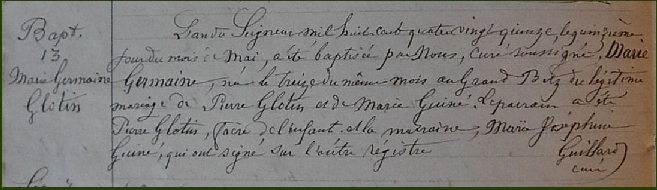 Bapt.
13
Marie Germaine
Glotin
L'an du Seigneur mil huit cent quatre vingt quinze, le quinzième
jour du mois de Mai, a été baptisée par Nous, curé soussigné, Marie
Germaine, née le treize du même mois au Grand Betz du légitime
mariage de Pierre Glotin et de Marie Guiné. Le parrain a été
Pierre Glotin, frère de l'enfant et la marraine, Marie Joséphine
Guiné, qui ont signé sur l'autre régistre
Guittard
curé